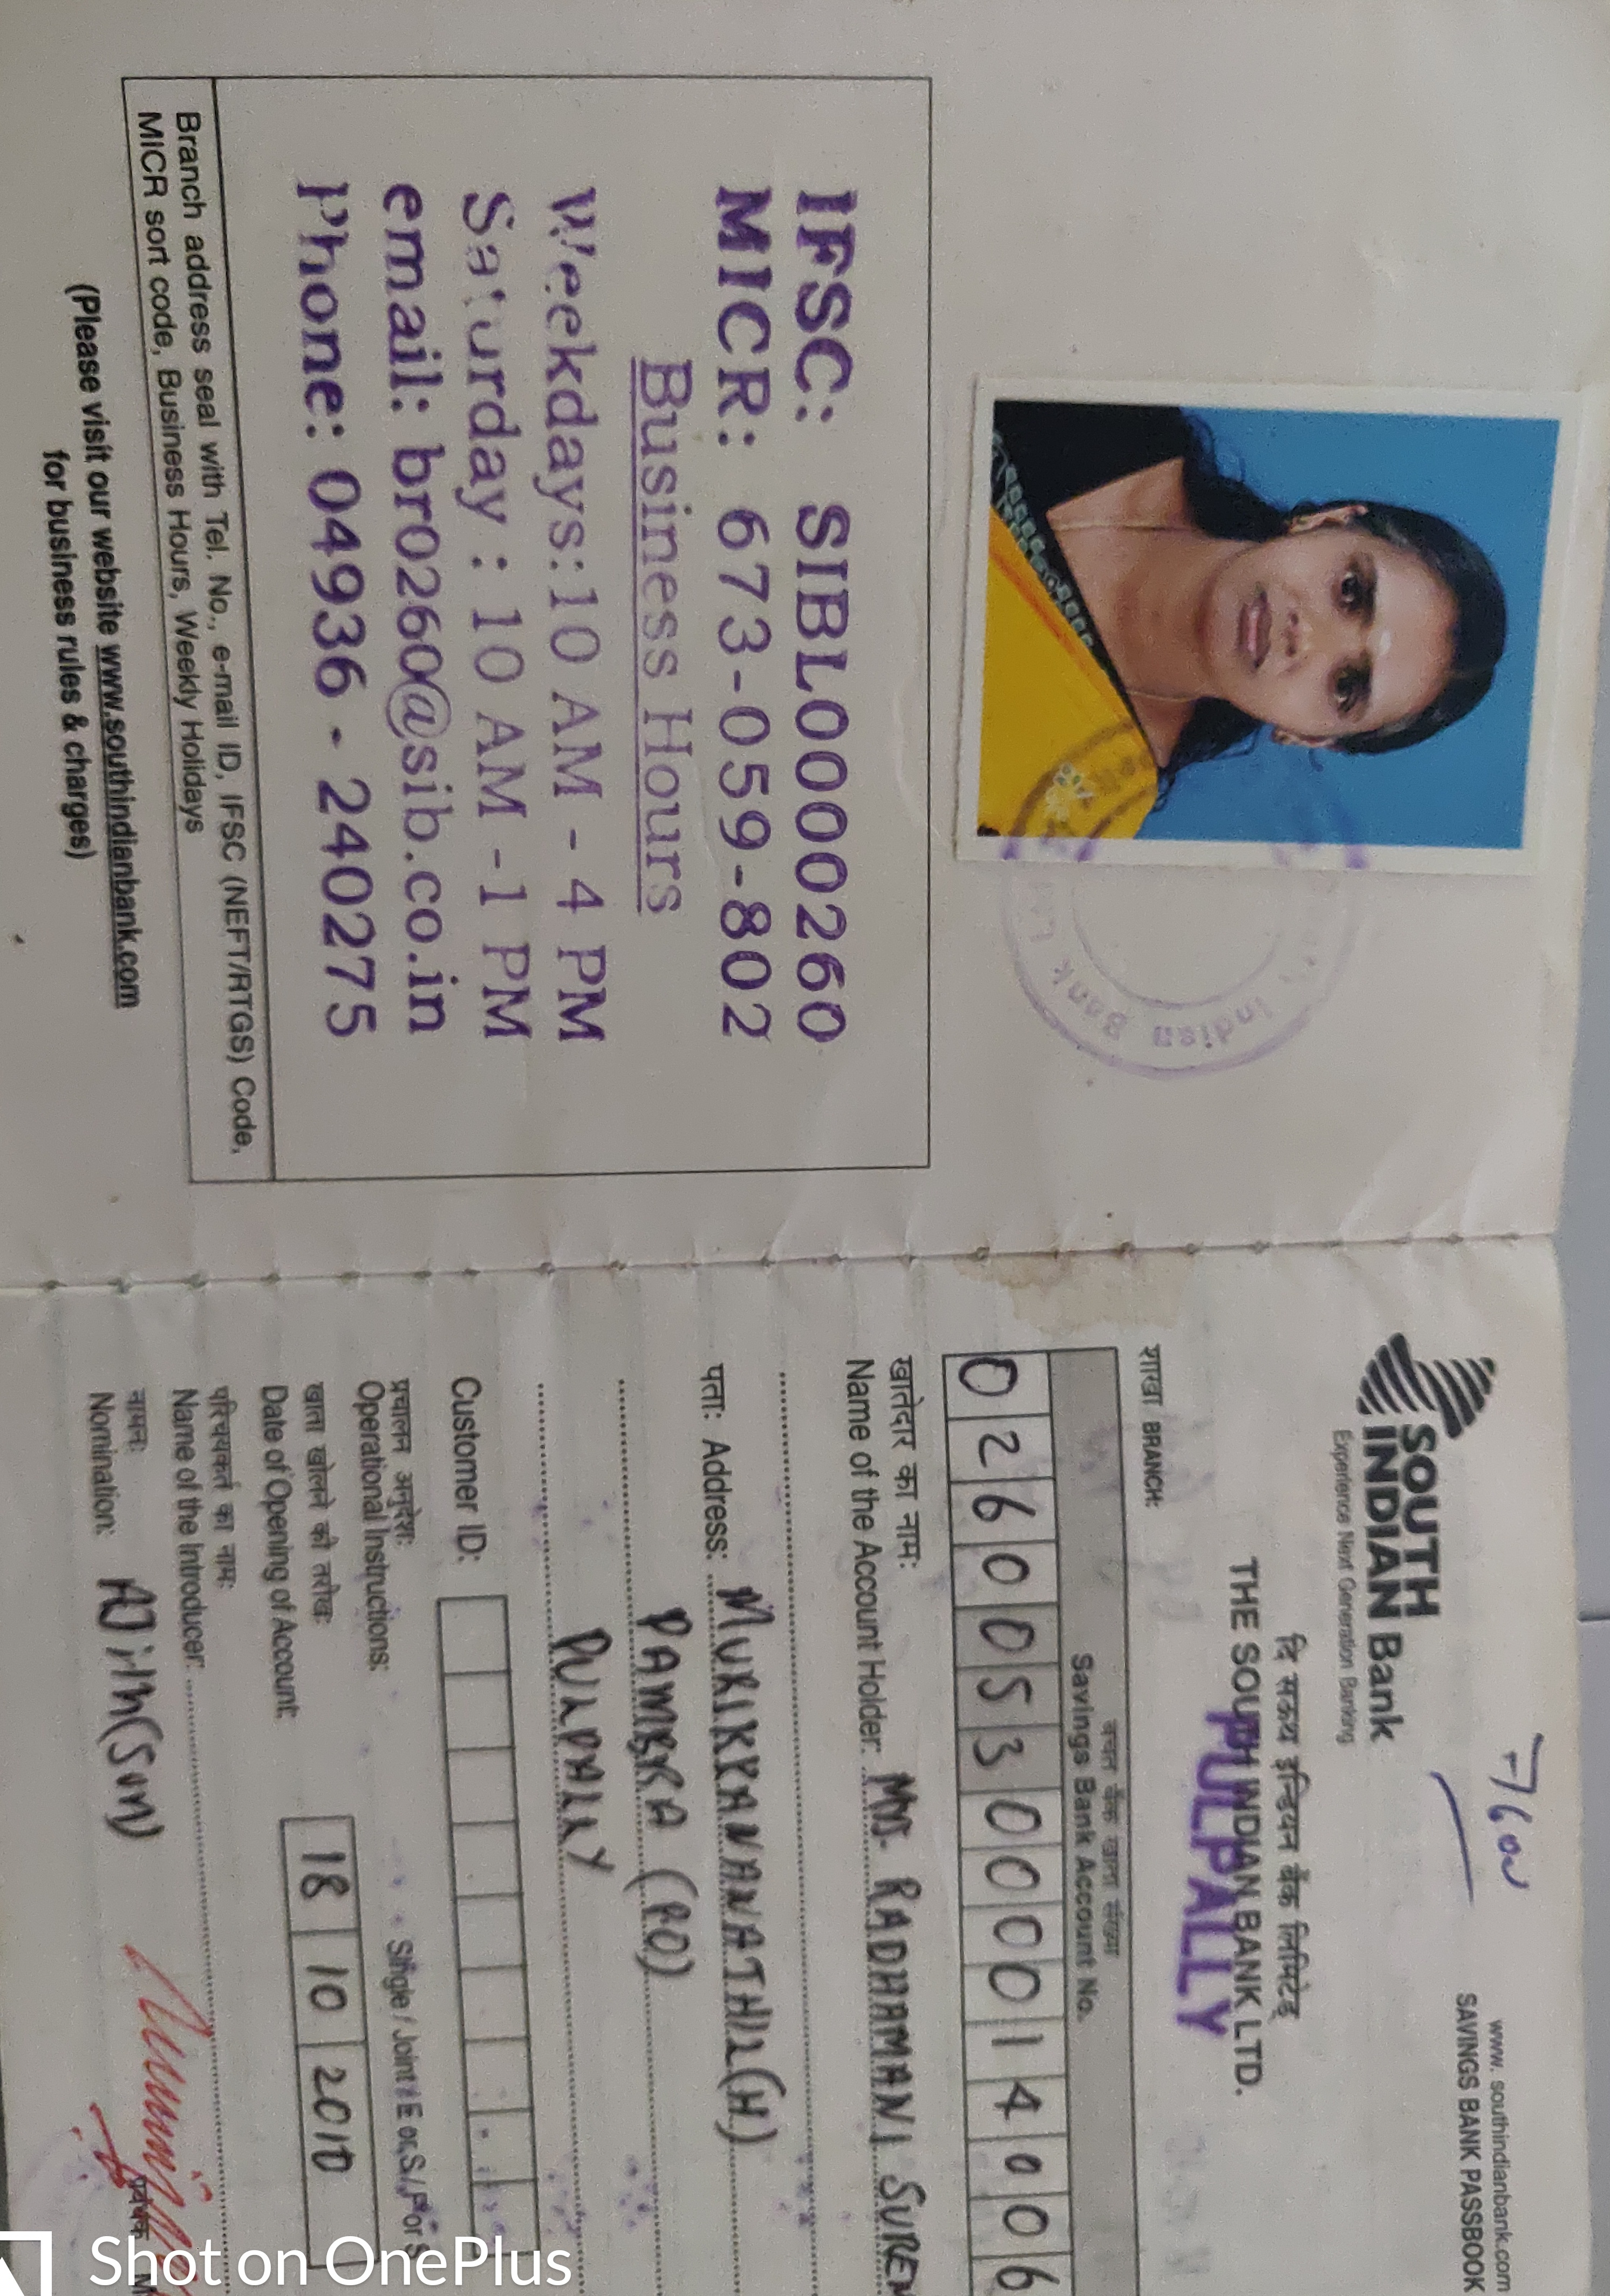 IFSC: SIBL0000260
MICR: 673-059-802
Business Hours
Weekdays:10 AM - 4 PM
Saturday : 10 AM -1 PM
email: br0260@sib.co.in
Phone: 04936 - 240275
Branch address seal with Tel. No., e-mail ID, IFSC (NEFT/RTGS) Code,
MICR sort code, Business Hours, Weekly Holidays
(Please visit our website www.southindianbank.com
for business rules & charges)
Indian Bank
www. southindianbank.com
SAVINGS BANK PASSBOOK
SOUTH
INDIAN Bank
Experience Next Generation Banking
दि सऊथ इन्डियन बैंक लिमिटेड्
THE SOUTH INDIAN BANK LTD.
PULPALLY
शाखा BRANCH:
बचत बैंक खाता संख्या
Savings Bank Account No.
0 2 6 0 0 5 3 0 0 0 0 1 4 0 0 6
खातेदार का नाम:
Name of the Account Holder: Mrs. RADHAMANI SUREN
पता: Address: MURIKKANANATHIL(H)
PAMBRA (P.O)
PULPALLY
Customer ID:
प्रचालन अनुदेश:
Operational Instructions: Single / Joint / E or S / F or S
खाता खोलने की तरीख:
Date of Opening of Account: 18 10 2010
परिचयकर्त का नाम:
Name of the Introducer:
नामन:
Nomination: AJith(Son)
Shot on OnePlus